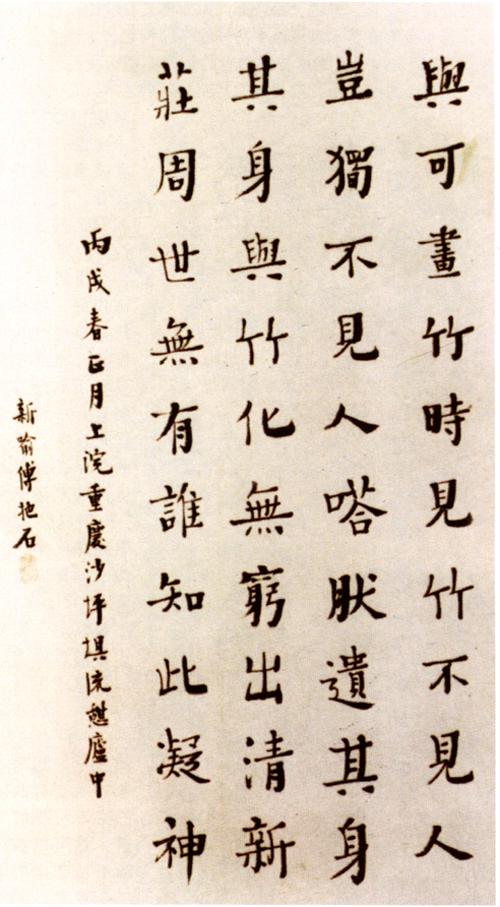 與可畫竹時見竹不見人
豈獨不見人嗒肰遺其身
其身與竹化無窮出清新
莊周世無有誰知此凝神
丙戌春正月上浣重慶沙坪埧流憩廬中
新喻傅抱石